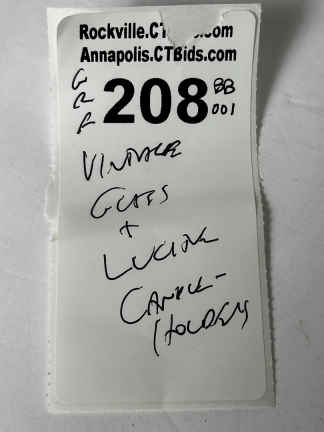 Rockville.CTBids.com
Annapolis.CTBids.com
GRR 208 BB
001
VINTAGE
GLASS
+
LUCITE
CANDLE-
HOLDERS